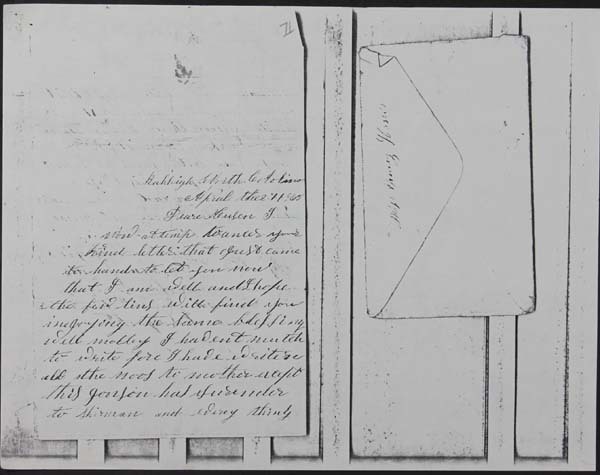 71
Rahleigh North Carolina
Aprial the 21 / 65
Deare Cusen I
now atemp to anser your
kind letter that Just came
to hand to let you now
that I am well and I hope
the few lins will find you
injoying the same blessing
well molley I hadent mutch
to write fore I have writen
all the noos to mother exept
this Jonson has surender
to shirman and evry thing